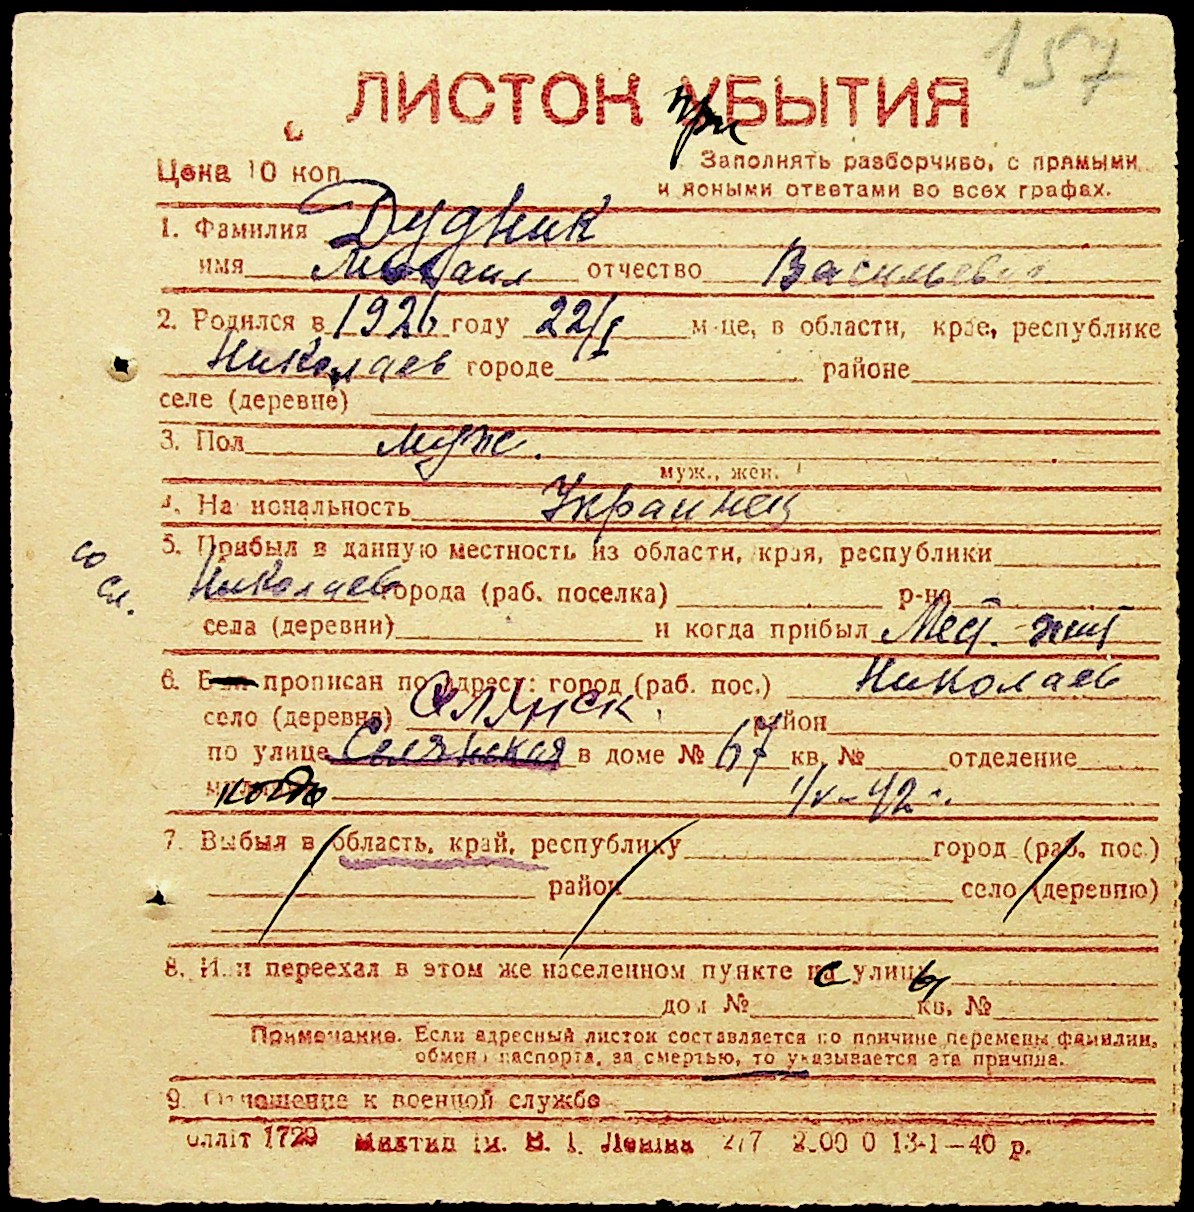 157
ЛИСТОК УБЫТИЯ
при
Цена 10 коп.
Заполнять разборчиво, с прямыми
и ясными ответами во всех графах.
1. Фамилия Дудник
имя Михаил отчество Васильевич
2. Родился в 1926 году 22/I м-це, в области, крае, республике
Николаев городе районе
селе (деревне)
3. Пол муж.
муж., жен.
4. Национальность Украинец
5. Прибыл в данную местность из области, края, республики
со сл.
Николаев города (раб. поселка) р-на
села (деревни) и когда прибыл Мест. жит
6. Был прописан по адресу: город (раб. пос.) Николаев
село (деревня) район
по улице Селянская в доме № 67 кв. № отделение
когда 1/V-42 г.
7. Выбыл в область, край, республику город (раб. пос.)
район село (деревню)
8. Или переехал в этом же населенном пункте с улицы
дом № кв. №
Примечание. Если адресный листок составляется по причине перемены фамилии,
обмена паспорта, за смертью, то указывается эта причина.
9. Отношение к военной службе
Миктип Ім. В. І. Леніна 13-I—40 р.